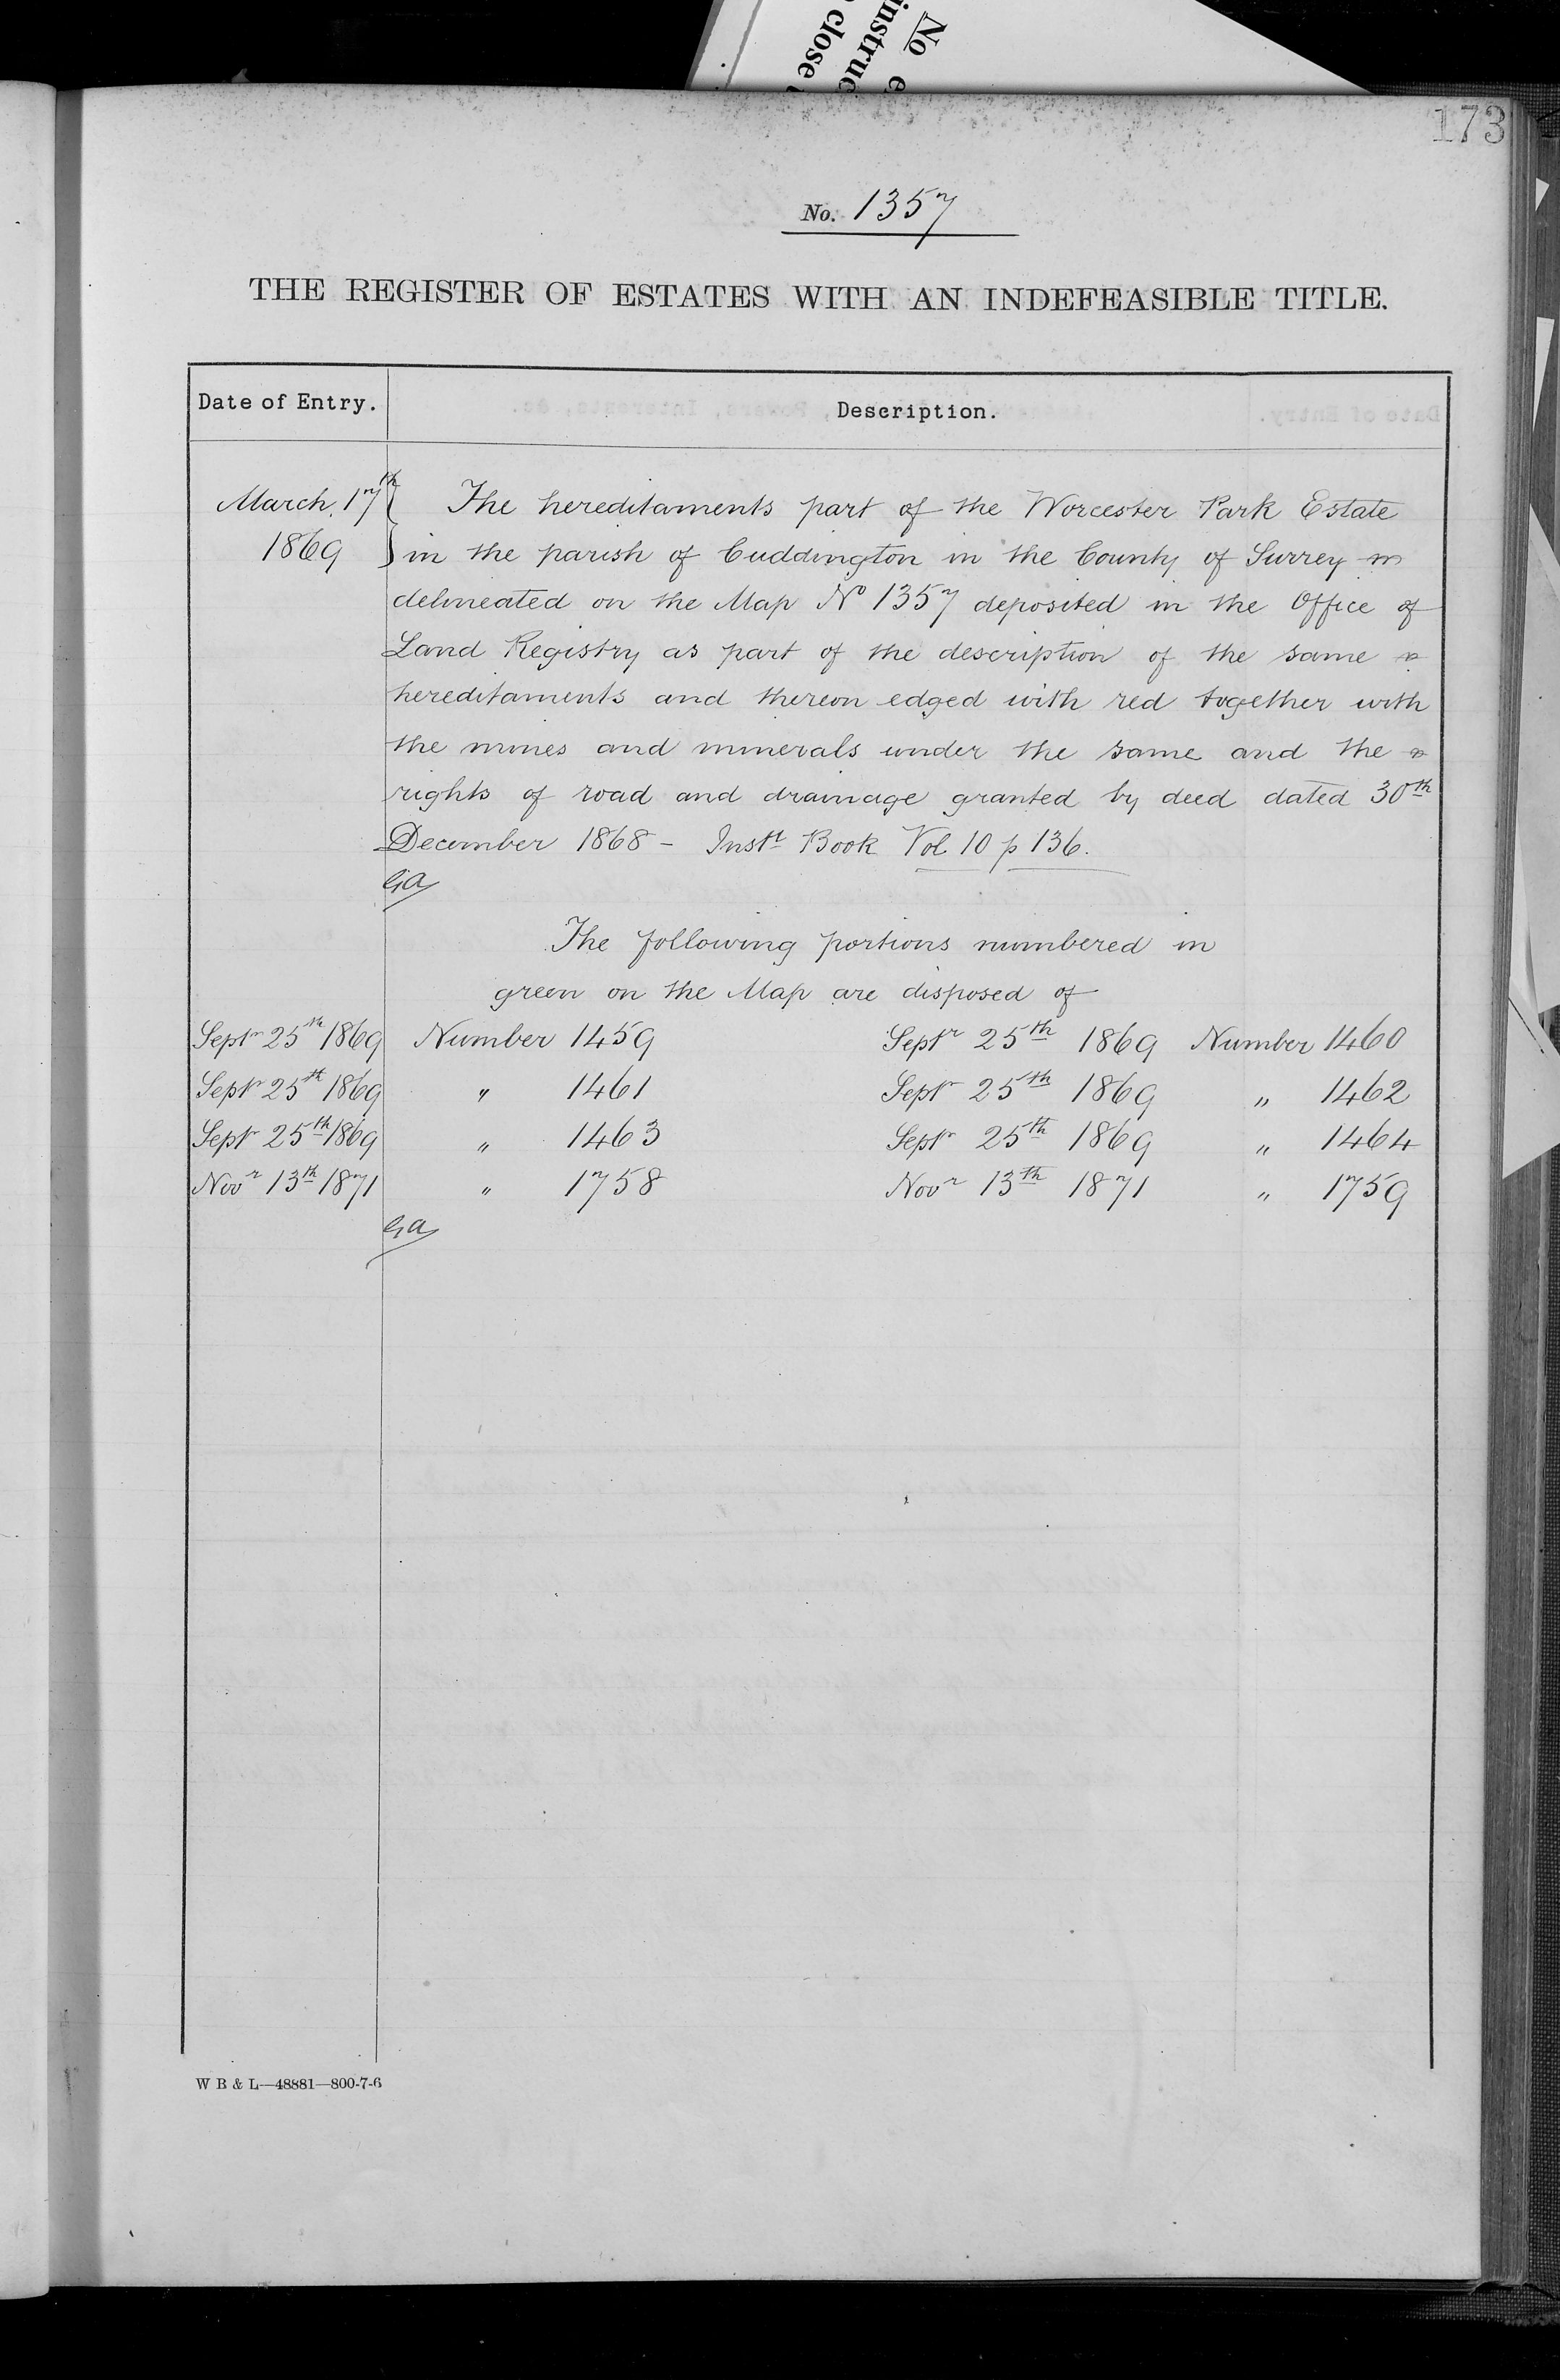 No
instruc
close
173
No. 1357
THE REGISTER OF ESTATES WITH AN INDEFEASIBLE TITLE.
Date of Entry. Description.
March. 17th The hereditaments part of the Worcester Park Estate
1869 in the parish of Cuddington in the County of Surrey
delineated on the Map No 1357 deposited in the Office of
Land Registry as part of the description of the same
hereditaments and thereon edged with red together with
the mines and minerals under the same and the
rights of road and drainage granted by deed dated 30th
December 1868 - Instt Book Vol. 10 p 136.
The following portions numbered in
green on the Map are disposed of
Septr 25th 1869 Number 1459 Septr 25th 1869 Number 1460
Septr 25th 1869 " 1461 Septr 25th 1869 " 1462
Septr 25th 1869 " 1463 Septr 25th 1869 " 1464
Novr 13th 1871 " 1758 Novr 13th 1871 " 1759
W B & L—48881—800-7-6